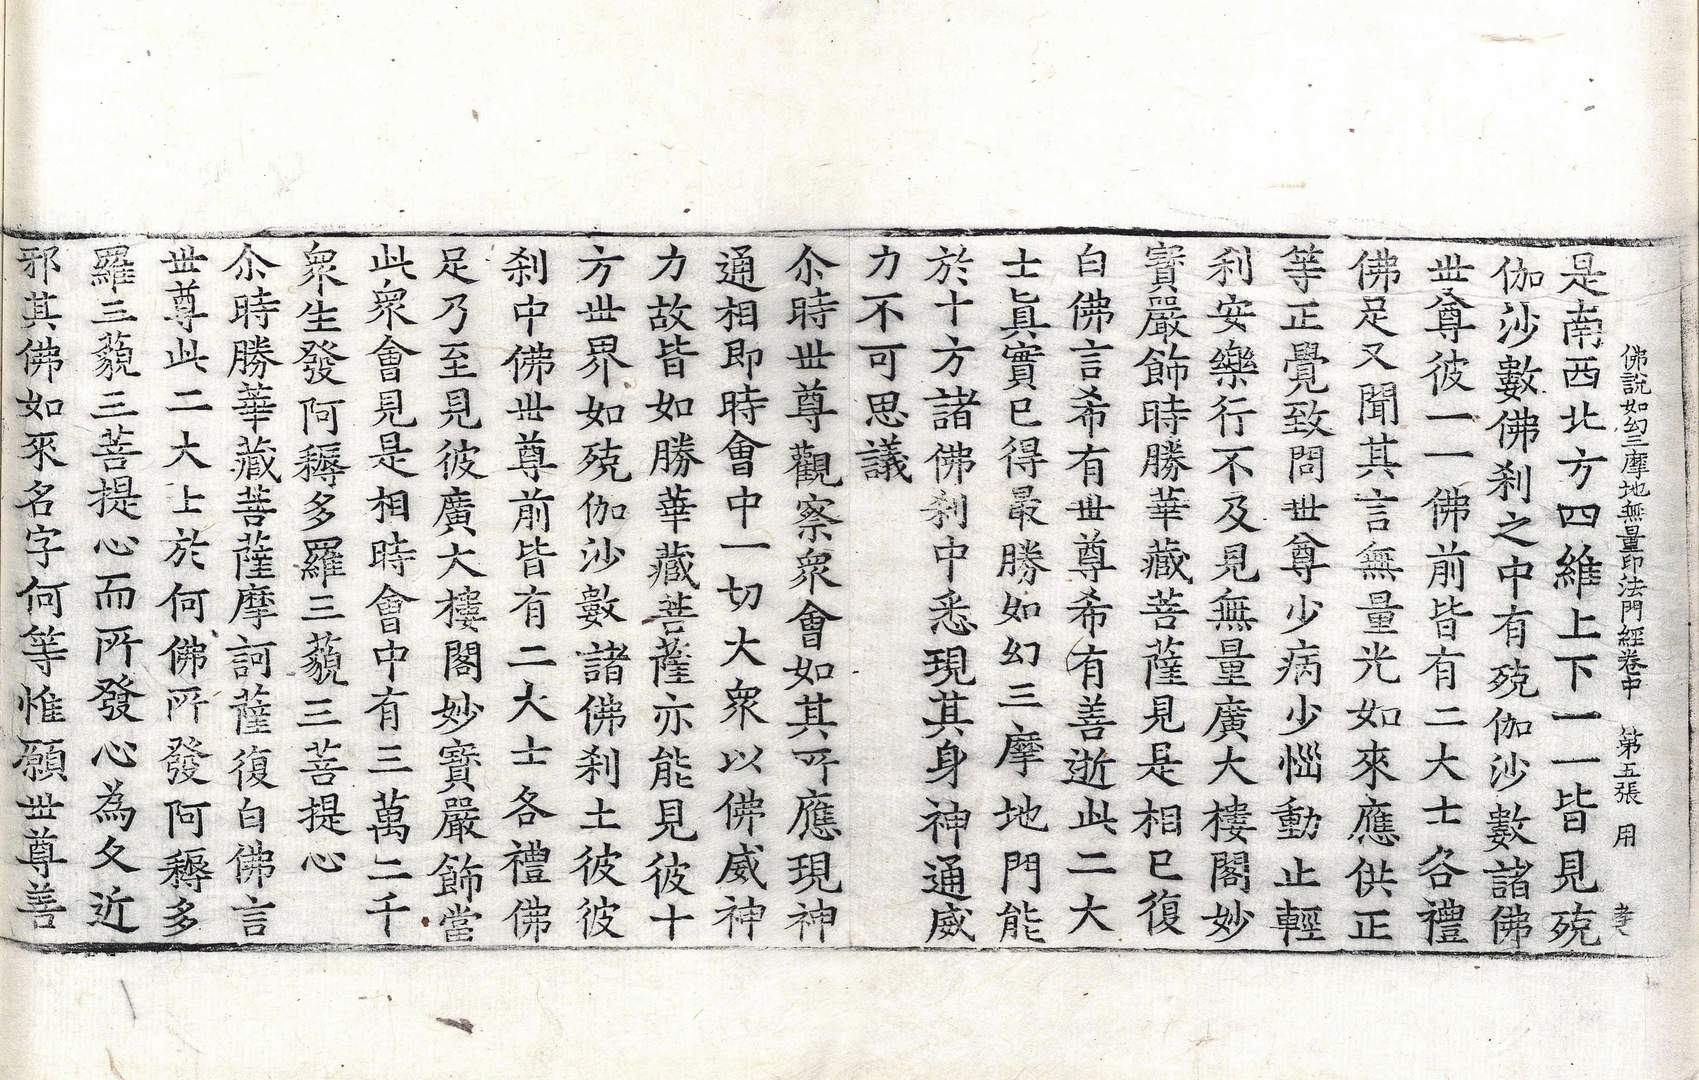 佛說如幻三摩地無量印法門經卷中 第五張 用
是南西北方四維上下一一皆見殑
伽沙數佛刹之中有殑伽沙數諸佛
世尊彼一一佛前皆有二大士各禮
佛足又聞其言無量光如來應供正
等正覺致問世尊少病少惱動止輕
利安樂行不及見無量廣大樓閣妙
寶嚴飾時勝華藏菩薩見是相已復
白佛言希有世尊希有善逝此二大
士眞實已得最勝如幻三摩地門能
於十方諸佛刹中悉現其身神通威
力不可思議
尒時世尊觀察衆會如其所應現神
通相即時會中一切大衆以佛威神
力故皆如勝華藏菩薩亦能見彼十
方世界如殑伽沙數諸佛刹土彼彼
刹中佛世尊前皆有二大士各禮佛
足乃至見彼廣大樓閣妙寶嚴飾當
此衆會見是相時會中有三萬二千
衆生發阿耨多羅三藐三菩提心
尒時勝華藏菩薩摩訶薩復白佛言
世尊此二大士於何佛所發阿耨多
羅三藐三菩提心而所發心為久近
邪其佛如來名字何等惟願世尊善